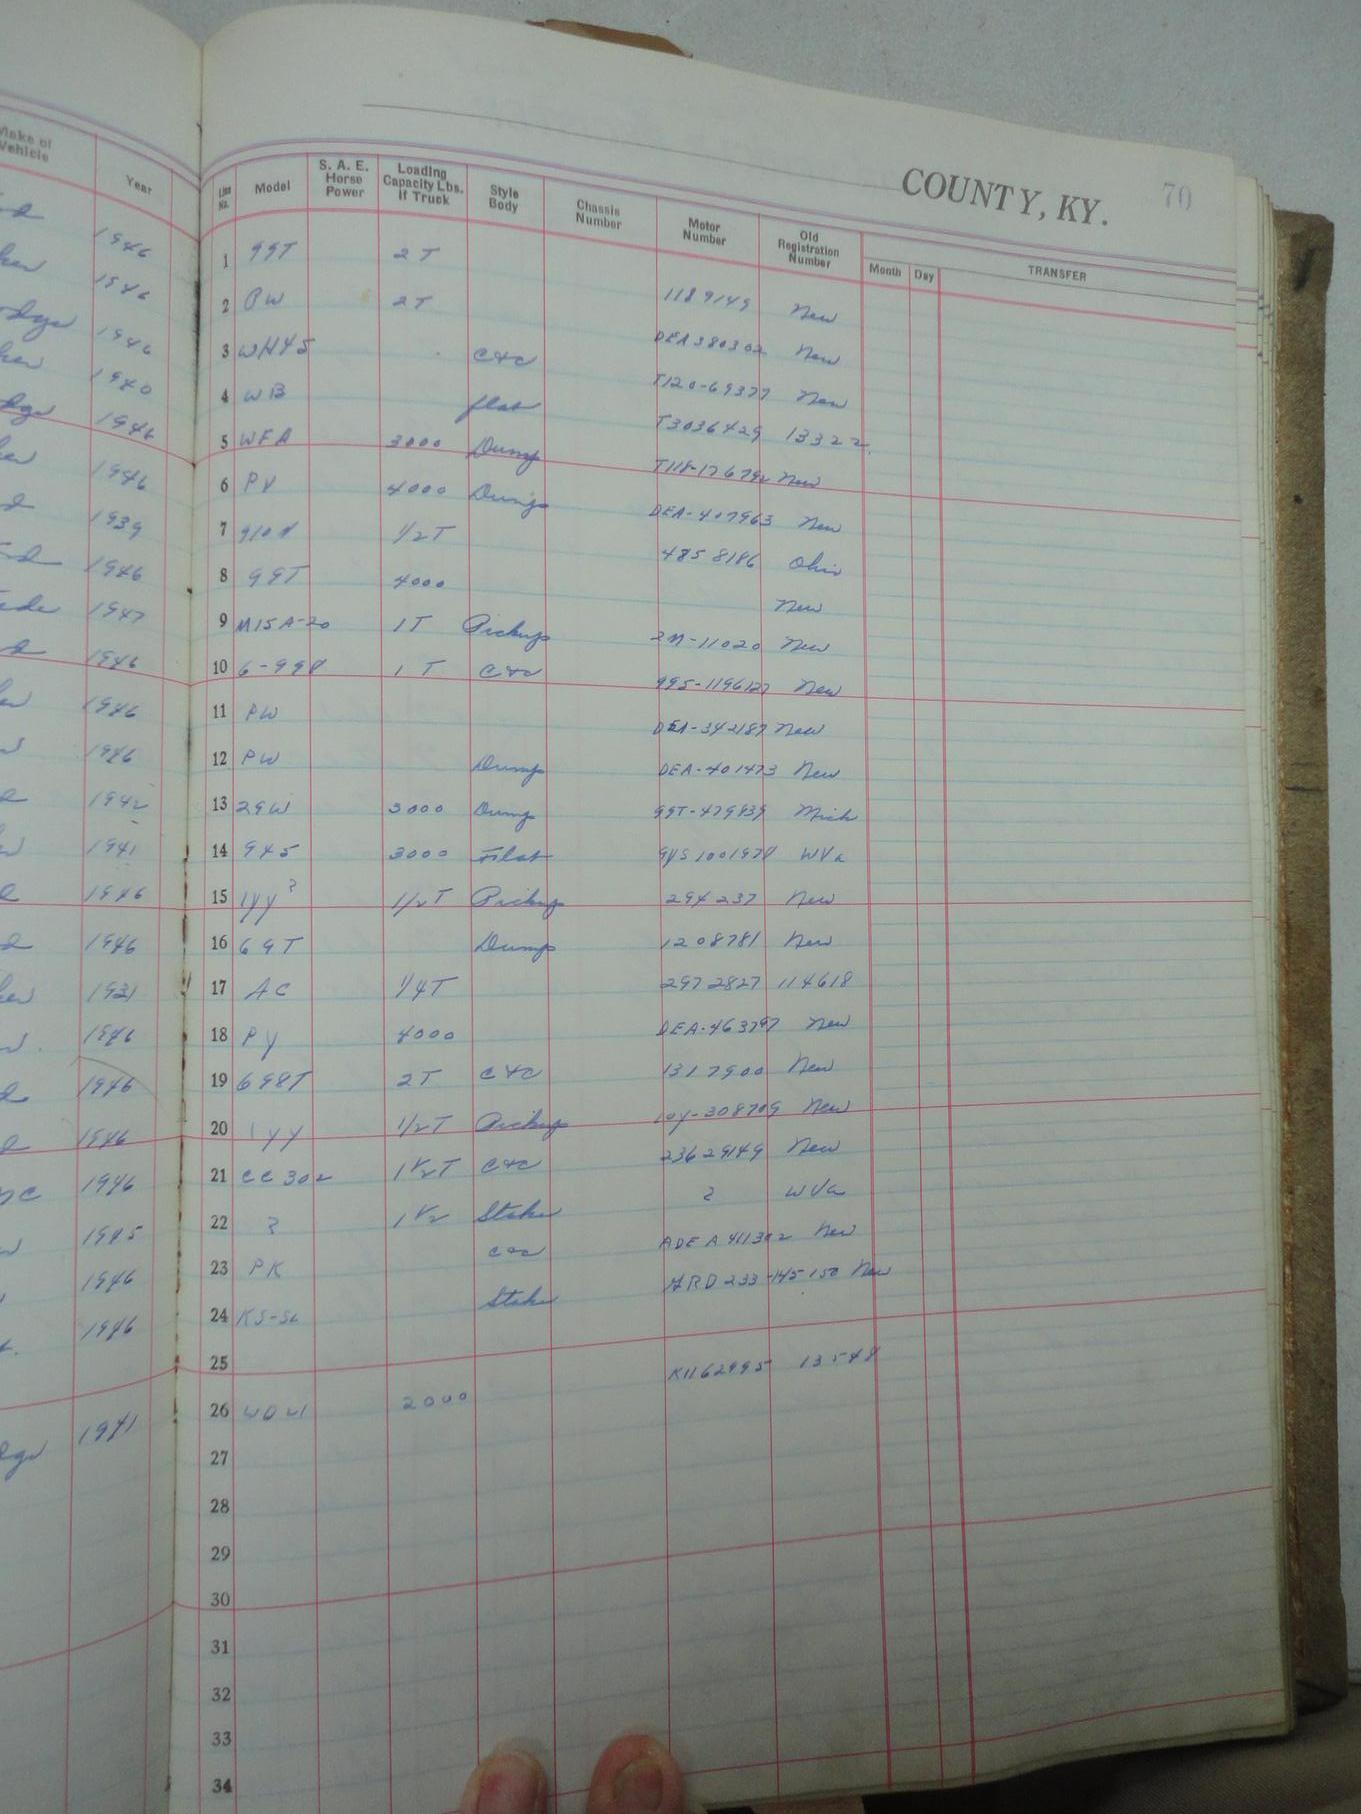 Make of Vehicle Year Line No. Model S. A. E. Horse Power Loading Capacity Lbs. if Truck Style Body Chassis Number Motor Number Old Registration Number Month Day TRANSFER
COUNTY, KY. 70
1946 1 99T 2T 1189149 New
1946 2 PW 2T DEA380302 New
1946 3 WH45 C&C T120-69377 New
1940 4 WB flat T3036429 13322
1946 5 WFA 3000 Dump T118-176792 New
1946 6 PV 4000 Dump DEA-407963 New
1939 7 1/2T 4858186 Ohio
1946 8 99T 4000 New
1947 9 M15A-20 1T Pickup 2M-11020 New
1946 10 6-998 1T C&C 995-1196127 New
1946 11 PW DEA-342187 New
1946 12 PW Dump DEA-401473 New
1942 13 29W 3000 Dump 99T-479839 Mich
1941 14 945 3000 Flat WVa
1946 15 1yy? 1/2T Pickup 294237 New
1946 16 69T Dump 1208781 New
1931 17 AC 1/4T 2972827 114618
1946 18 Py 4000 DEA-463797 New
1946 19 698T 2T C&C 1317900 New
1946 20 1yy 1/2T Pickup 10y-308709 New
1946 21 CC302 1 1/2T C&C 23629149 New
1945 22 ? 1 1/2 Stake ? WVa
1946 23 PK C&C ADEA411302 New
1946 24 Stake HRD233-145-150 New
25
1941 26 2000 K1162995 13548
27
28
29
30
31
32
33
34